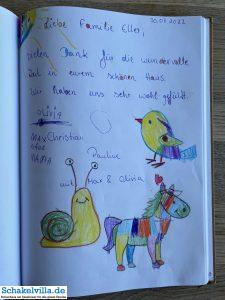 Liebe Familie Eller,
30.03.2022
vielen Dank für die wundervolle
Zeit in eurem schönen Haus.
Wir haben uns sehr wohl gefühlt.
Olivia
MAX Christian
MAMA
Pauline
mit Max & Olivia
Schakelvilla.de